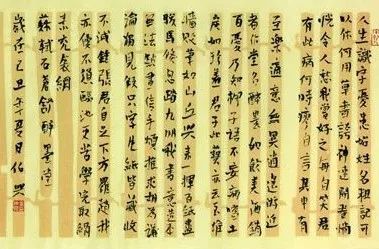 人生識字憂患始姓名粗記可
以休何用草書誇神速開卷惝
怳令人愁我嘗好之每自笑君
有此病何時瘳自言其中有
至樂適意無異逍遙遊近
者作堂名醉墨如飲美酒銷
百憂乃知柳子語不妄病嗜土
炭如珍羞君於此藝亦云至堆
牆敗筆如山丘興來一揮百紙盡
駿馬倏忽踏九州我書意造本
無法點畫信手煩推求胡為議
論獨見假隻字片紙皆藏收
不減鍾張君自足下方羅趙我
亦優不須臨池更苦學完取絹
素充衾裯
蘇軾石蒼舒醉墨堂
歲在己丑年夏日伯興